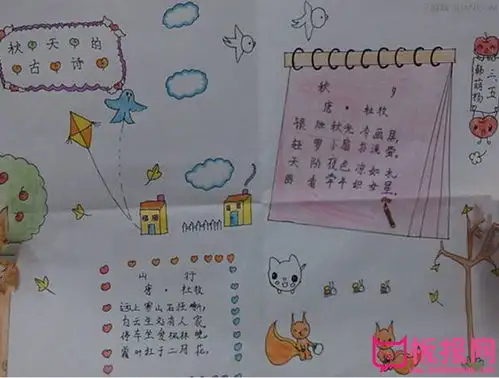 秋天的
古诗
秋 夕
唐·杜牧
银烛秋光冷画屏,
轻罗小扇扑流萤。
天阶夜色凉如水
看牵牛织女星。
三五
韩萌杨
山 行
唐·杜牧
远上寒山石径斜,
白云生处有人家
停车坐爱枫林晚
霜叶红于二月花,
板报网